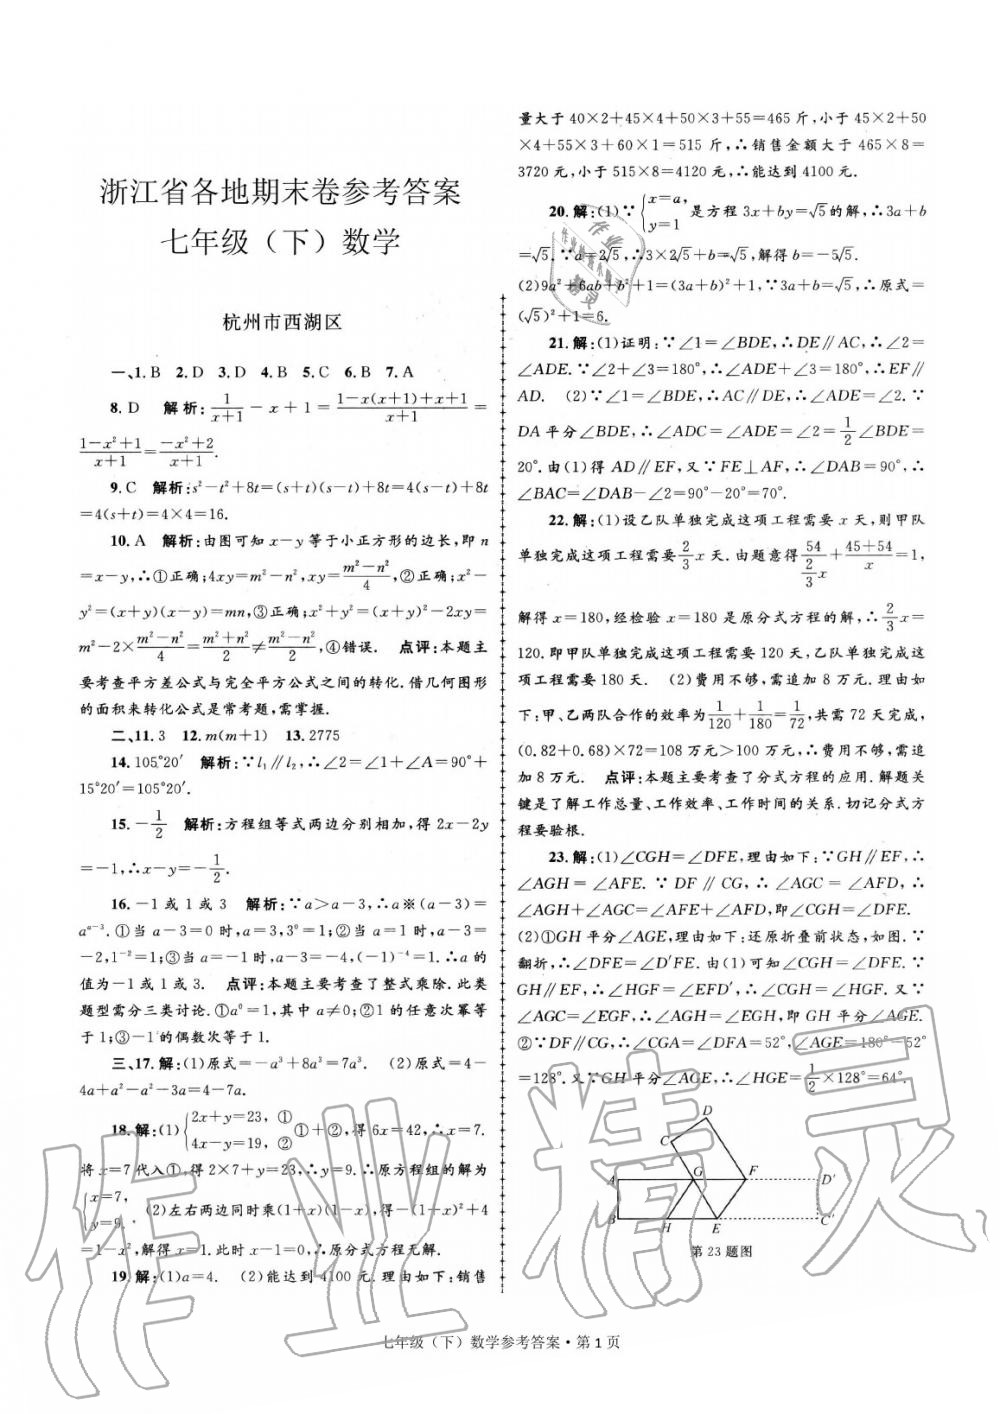 浙江省各地期末卷参考答案
七年级（下）数学
杭州市西湖区
一、1. B 2. D 3. D 4. B 5. C 6. B 7. A
8. D 解析:1/(x+1)-x+1=(1-x(x+1)+x+1)/(x+1)=
(1-x²+1)/(x+1)=(-x²+2)/(x+1).
9. C 解析:s²-t²+8t=(s+t)(s-t)+8t=4(s-t)+8t
=4(s+t)=4×4=16.
10. A 解析:由图可知 x-y 等于小正方形的边长,即 n
=x-y,∴①正确;4xy=m²-n²,xy=(m²-n²)/4,②正确;x²-
y²=(x+y)(x-y)=mn,③正确;x²+y²=(x+y)²-2xy=
m²-2×(m²-n²)/4=(m²+n²)/2≠(m²-n²)/2,④错误. 点评:本题主
要考查平方差公式与完全平方公式之间的转化.借几何图形
的面积来转化公式是常考题,需掌握.
二、11. 3 12. m(m+1) 13. 2775
14. 105°20′ 解析:∵l₁∥l₂,∴∠2=∠1+∠A=90°+
15°20′=105°20′.
15. -1/2 解析:方程组等式两边分别相加,得 2x-2y
=-1,∴x-y=-1/2.
16. -1 或 1 或 3 解析:∵a>a-3,∴a※(a-3)=
aᵃ⁻³.①当 a-3=0 时,a=3,3⁰=1;②当 a=1 时,a-3=
-2,1⁻²=1;③当 a=-1 时,a-3=-4,(-1)⁻⁴=1.∴a 的
值为-1 或 1 或 3. 点评:本题主要考查了整式乘除.此类
题型需分三类讨论.①a⁰=1,其中 a≠0;②1 的任意次幂等
于 1;③-1 的偶数次等于 1.
三、17. 解:(1)原式=-a³+8a³=7a³. (2)原式=4-
4a+a²-a²-3a=4-7a.
18. 解:(1){2x+y=23, ① 4x-y=19, ② ①+②,得 6x=42,∴x=7.
将 x=7 代入①,得 2×7+y=23,∴y=9.∴原方程组的解为
{x=7, y=9. (2)左右两边同时乘(1+x)(1-x),得-(1+x)²+4
=1-x²,解得 x=1.此时 1-x=0,∴原分式方程无解.
19. 解:(1)a=4. (2)能达到 4100 元.理由如下:销售
量大于 40×2+45×4+50×3+55=465 斤,小于 45×2+50
×4+55×3+60×1=515 斤,∴销售金额大于 465×8=
3720 元,小于 515×8=4120 元,∴能达到 4100 元.
20. 解:(1)∵{x=a, y=1 是方程 3x+by=√5的解,∴3a+b
=√5.∵a=2√5,∴3×2√5+b=√5,解得 b=-5√5.
(2)9a²+6ab+b²+1=(3a+b)²+1,∵3a+b=√5,∴原式=
(√5)²+1=6.
21. 解:(1)证明:∵∠1=∠BDE,∴DE∥AC,∴∠2=
∠ADE.∵∠2+∠3=180°,∴∠ADE+∠3=180°,∴EF∥
AD. (2)∵∠1=∠BDE,∴AC∥DE,∴∠ADE=∠2.∵
DA 平分∠BDE,∴∠ADC=∠ADE=∠2=1/2∠BDE=
20°.由(1)得 AD∥EF,又∵FE⊥AF,∴∠DAB=90°,∴
∠BAC=∠DAB-∠2=90°-20°=70°.
22. 解:(1)设乙队单独完成这项工程需要 x 天,则甲队
单独完成这项工程需要2/3x 天.由题意得54/(2/3 x)+(45+54)/x=1,
解得 x=180,经检验 x=180 是原分式方程的解,∴2/3x=
120.即甲队单独完成这项工程需要 120 天,乙队单独完成这
项工程需要 180 天. (2)费用不够,需追加 8 万元.理由如
下:甲、乙两队合作的效率为1/120+1/180=1/72,共需 72 天完成,
(0.82+0.68)×72=108 万元>100 万元,∴费用不够,需追
加 8 万元. 点评:本题主要考查了分式方程的应用.解题关
键是了解工作总量、工作效率、工作时间的关系.切记分式方
程要验根.
23. 解:(1)∠CGH=∠DFE,理由如下:∵GH∥EF,∴
∠AGH=∠AFE.∵DF∥CG,∴∠AGC=∠AFD,∴
∠AGH+∠AGC=∠AFE+∠AFD,即∠CGH=∠DFE.
(2)①GH 平分∠AGE,理由如下:还原折叠前状态,如图.∵
翻折,∴∠DFE=∠D′FE.由(1)可知∠CGH=∠DFE.∵
GH∥EF,∴∠HGF=∠EFD′,∴∠CGH=∠HGF.又∵
∠AGC=∠EGF,∴∠AGH=∠EGH,即 GH 平分∠AGE.
②∵DF∥CG,∴∠CGA=∠DFA=52°,∠AGE=180°-52°
=128°.又∵GH 平分∠AGE,∴∠HGE=1/2×128°=64°.
D
C
A G F D′
B H E C′
第 23 题图
七年级（下）数学参考答案·第 1 页
作业精灵